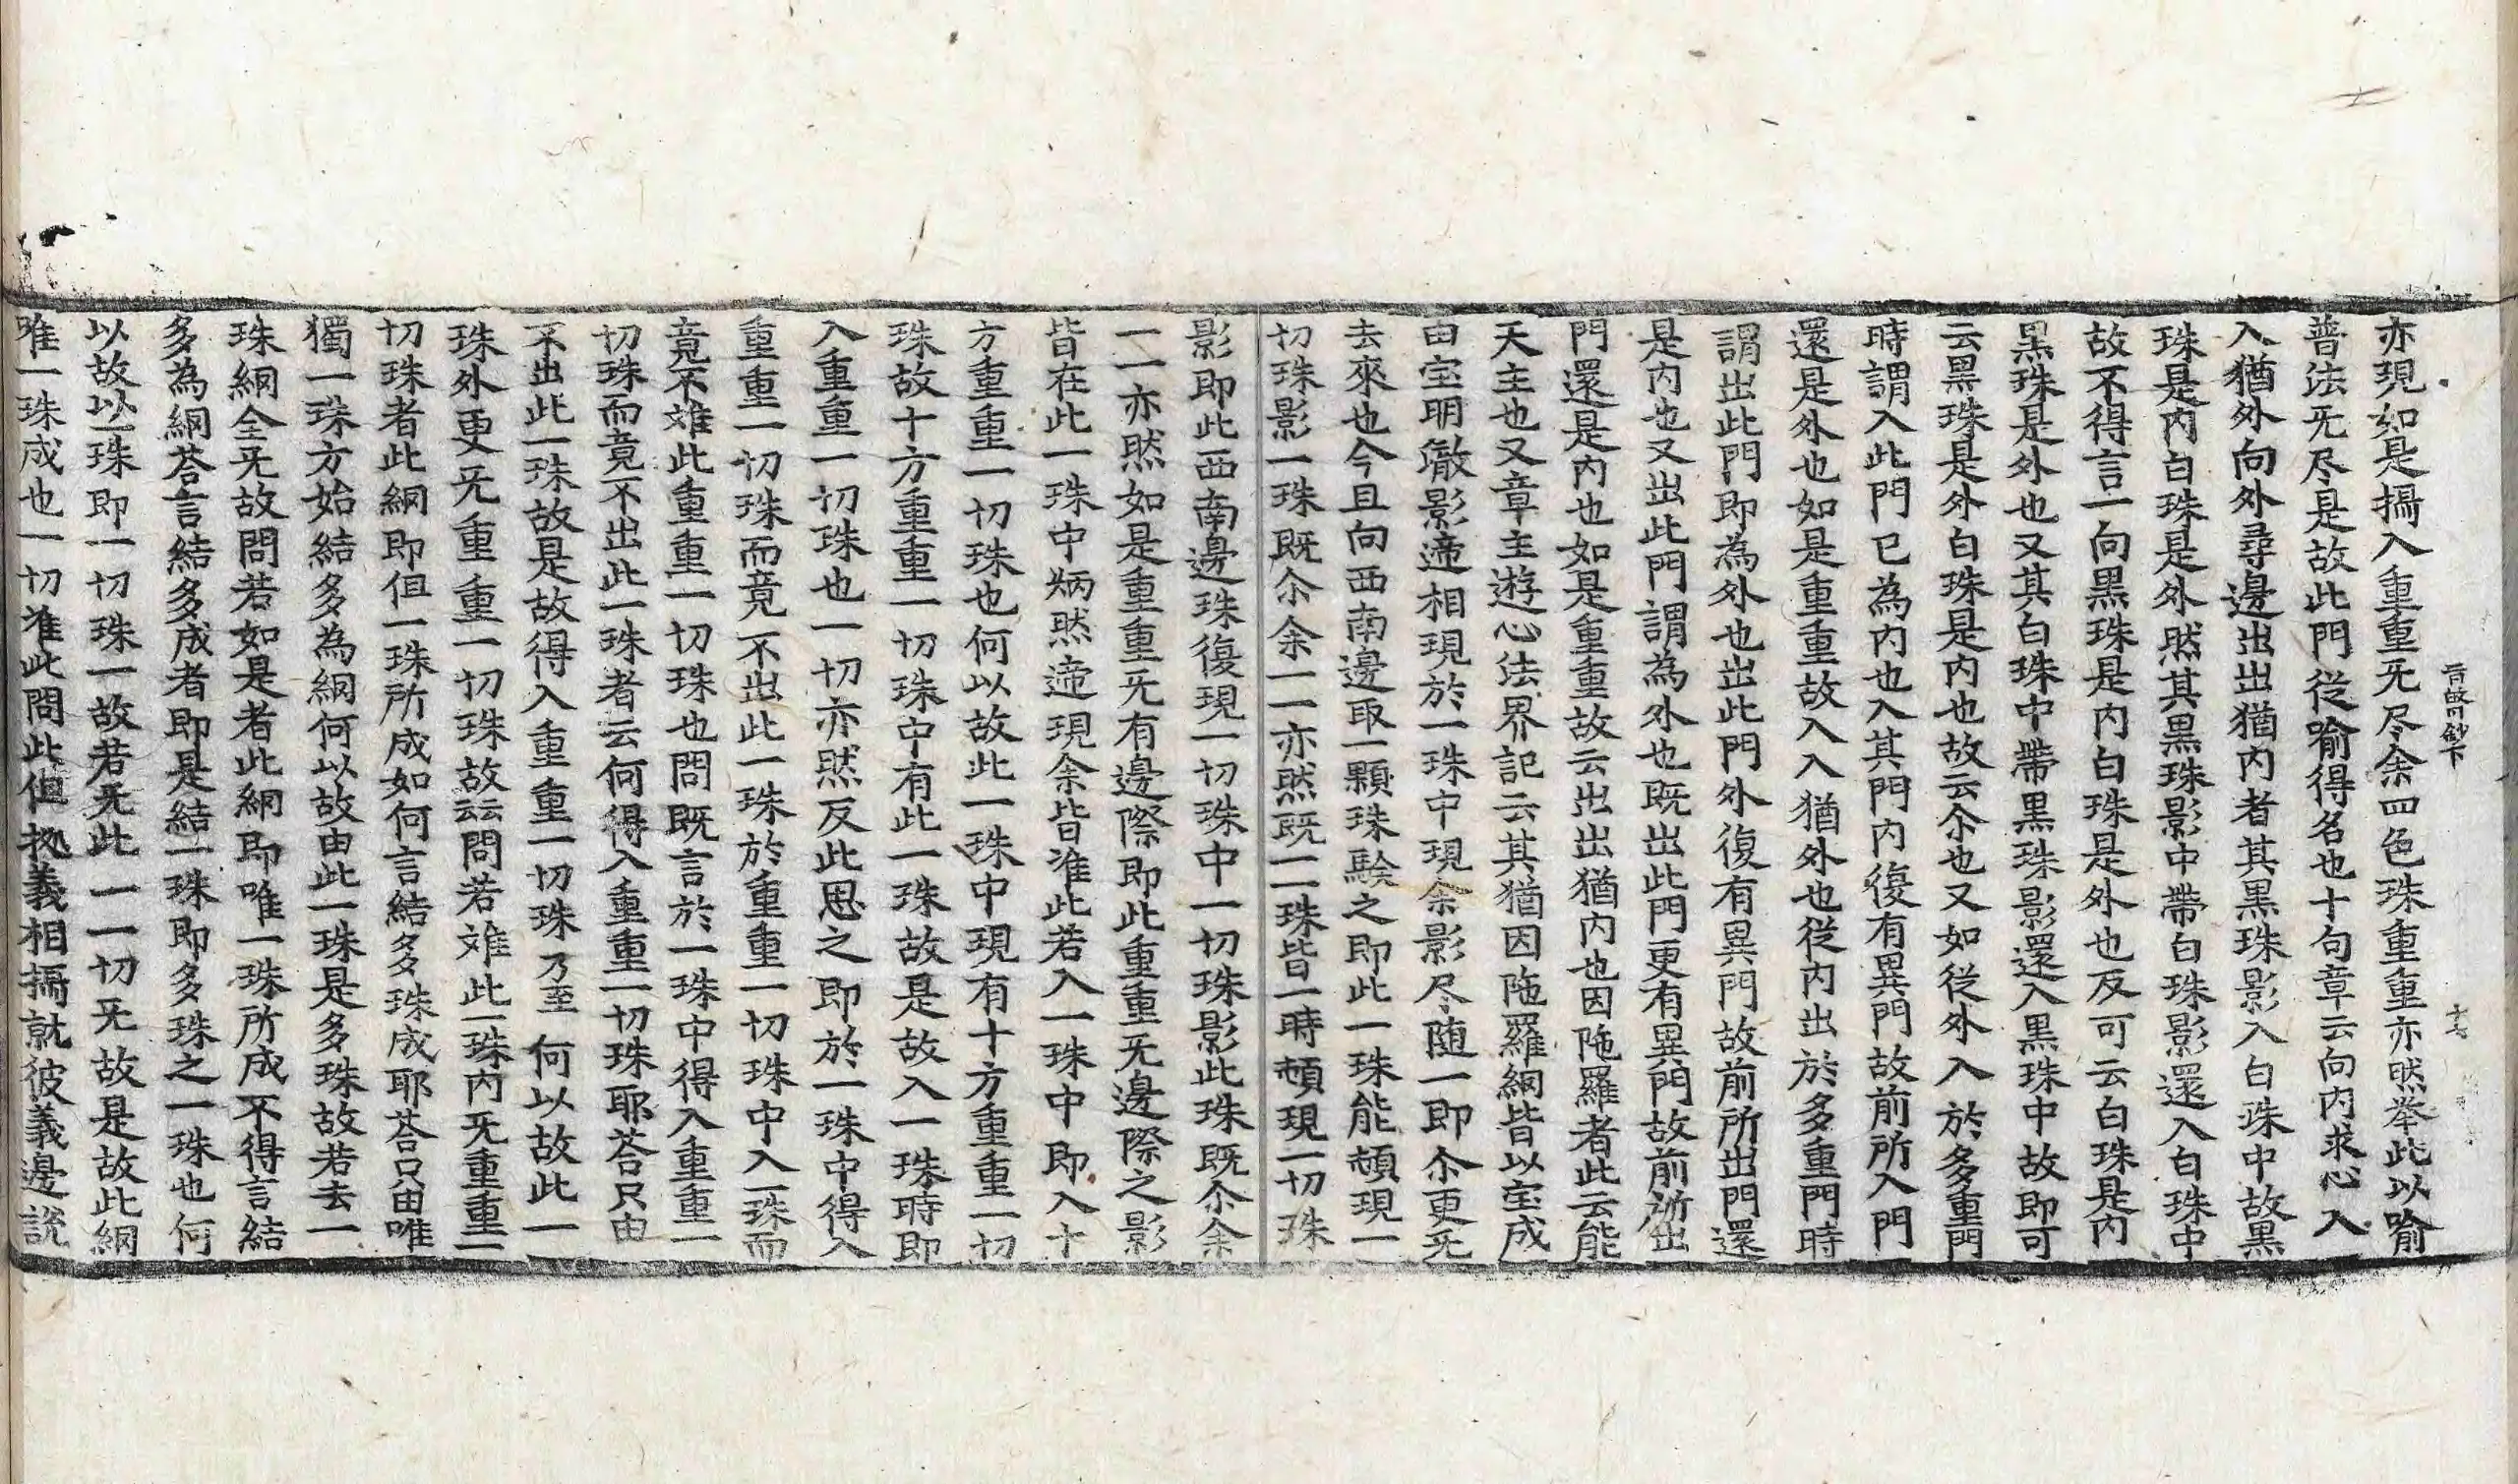 亦現如是攝入重重旡尽余四色珠重重亦然举此以喻
普法旡尽是故此門從喻得名也十句章云向内求心入
入猶外向外尋邊出出猶内者其黒珠影入白珠中故黒
珠是内白珠是外然其黒珠影中帶白珠影還入白珠中
故不得言一向黒珠是内白珠是外也反可云白珠是内
黒珠是外也又其白珠中帶黒珠影還入黒珠中故即可
云黒珠是外白珠是内也故云尒也又如從外入於多重門
時謂入此門已為内也入其門内復有異門故前所入門
還是外也如是重重故入入猶外也從内出於多重門時
謂出此門即為外也出此門外復有異門故前所出門還
是内也又出此門謂為外也既出此門更有異門故前所出
門還是内也如是重重故云出出猶内也因陁羅者此云能
天主也又章主遊心法界記云其猶因陁羅網皆以宝成
由宝明徹影遞相現於一珠中現余影尽随一即尒更旡
去來也今且向西南邊取一顆珠験之即此一珠能頓現一
切珠影一珠既尒余一一亦然既一一珠皆一時頓現一切珠
影即此西南邊珠復現一切珠中一切珠影此珠既尒余
一一亦然如是重重旡有邊際即此重重旡邊際之影
皆在此一珠中炳然遞現余皆准此若入一珠中即入十
方重重一切珠也何以故此一珠中現有十方重重一切
珠故十方重重一切珠中有此一珠故是故入一珠時即
入重重一切珠也一切亦然反此思之即於一珠中得入
重重一切珠而竟不出此一珠於重重一切珠中入一珠而
竟不難此重重一切珠也問既言於一珠中得入重重一
切珠而竟不出此一珠者云何得入重重一切珠耶荅只由
不出此一珠故是故得入重重一切珠乃至何以故此一
珠外更旡重重一切珠故云云問若難此一珠内旡重重一
切珠者此網即但一珠所成如何言結多珠成耶荅只由唯
獨一珠方始結多為網何以故由此一珠是多珠故若去一
珠網全旡故問若如是者此網即唯一珠所成不得言結
多為網荅言結多成者即是結一珠即多珠之一珠也何
以故以一珠即一切珠一故若旡此一一切旡故是故此網
唯一珠成也一切准此問此但拠義相攝就彼義邊說
十七